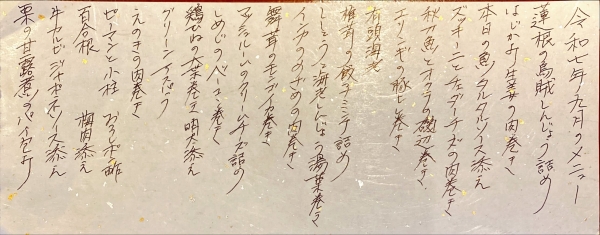 令和七年九月のメニュー
蓮根の烏賊しんじょう詰め
はじかみ生姜の肉巻き
本日の魚 タルタルソース添え
ズッキーニとチェダーチーズの肉巻き
秋刀魚とオクラの磯辺巻き
エリンギの豚しそ巻き
有頭海老
椎茸の餃子ミンチ詰め
イチヂクの肉巻き
ししとうの海老しんじょう湯葉巻き
舞茸のモンゴイカ巻き
マッシュルームのクリームチーズ詰め
しめじのベーコン巻き
鶏ささみの大葉巻き 明太添え
グリーンアスパラ
えのきの肉巻き
ピーマンと小柱 おろしポン酢
百合根 梅肉添え
牛カルビ ジャポネソース添え
栗の甘露煮のパイ包み